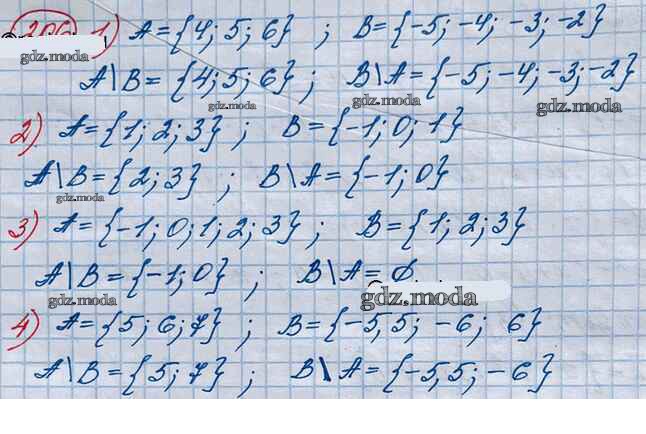 1) A={4; 5; 6} ; B={-5; -4; -3; -2}
gdz.moda
A\B= {4; 5; 6} ; B\A={-5; -4; -3; -2}
gdz.moda gdz.moda gdz.moda
2) A={1; 2; 3} ; B={-1; 0; 1}
A\B={2; 3} ; B\A={-1; 0}
gdz.moda
3) A={-1; 0; 1; 2; 3} ; B={1; 2; 3}
A\B={-1; 0} ; B\A=∅
gdz.moda gdz.moda
4) A={5; 6; 7} ; B={-5,5; -6; 6}
A\B={5; 7} ; B\A={-5,5; -6}